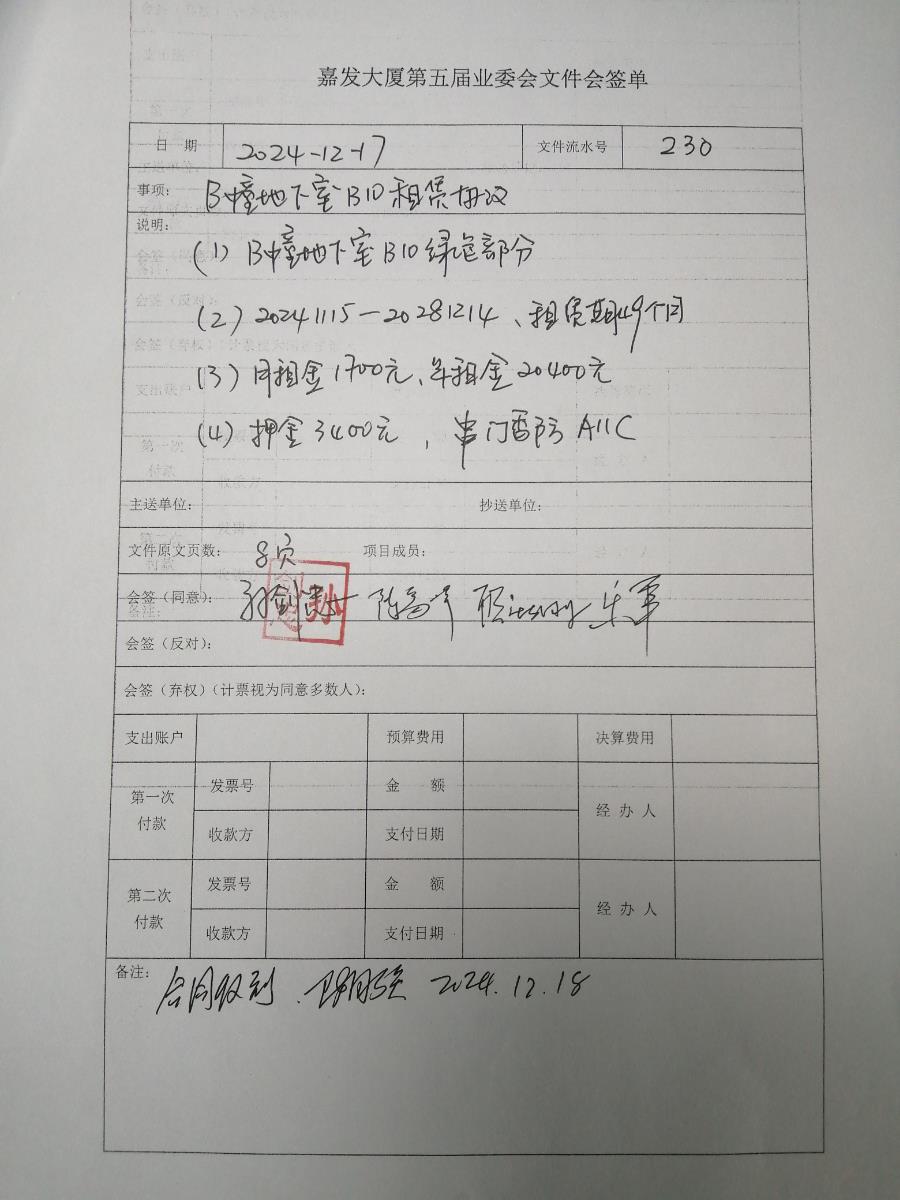 嘉发大厦第五届业委会文件会签单
日 期 2024-12-17 文件流水号 230
事项: B幢地下室B10租赁协议
说明:
(1) B幢地下室B10绿色部分
(2) 20241115—20281214、租赁期49个月
(3) 月租金1700元、年租金20400元
(4) 押金3400元, A11C
主送单位: 抄送单位:
文件原文页数: 8页 项目成员:
会签(同意): 乐军
孙
会签(反对):
会签(弃权)(计票视为同意多数人):
支出账户 预算费用 决算费用
第一次付款 发票号 金 额 经 办 人
收款方 支付日期
第二次付款 发票号 金 额 经 办 人
收款方 支付日期
备注: 合同收到. 2024.12.18